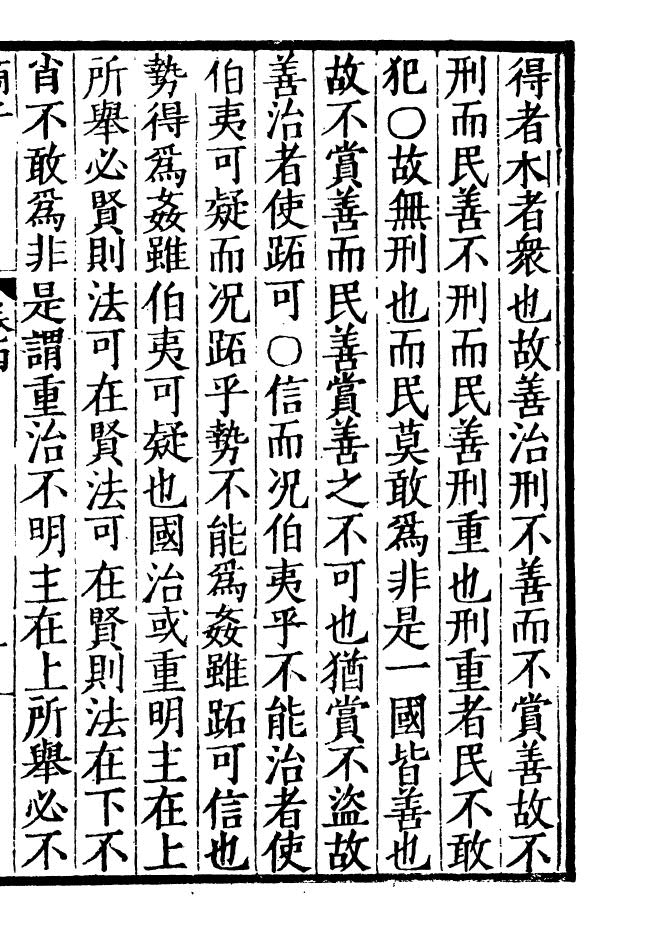 得者木者衆也故善治刑不善而不賞善故不
刑而民善不刑而民善刑重也刑重者民不敢
犯〇故無刑也而民莫敢爲非是一國皆善也
故不賞善而民善賞善之不可也猶賞不盜故
善治者使跖可〇信而况伯夷乎不能治者使
伯夷可疑而况跖乎勢不能爲姦雖跖可信也
勢得爲姦雖伯夷可疑也國治或重明主在上
所舉必賢則法可在賢法可在賢則法在下不
肖不敢爲非是謂重治不明主在上所舉必不